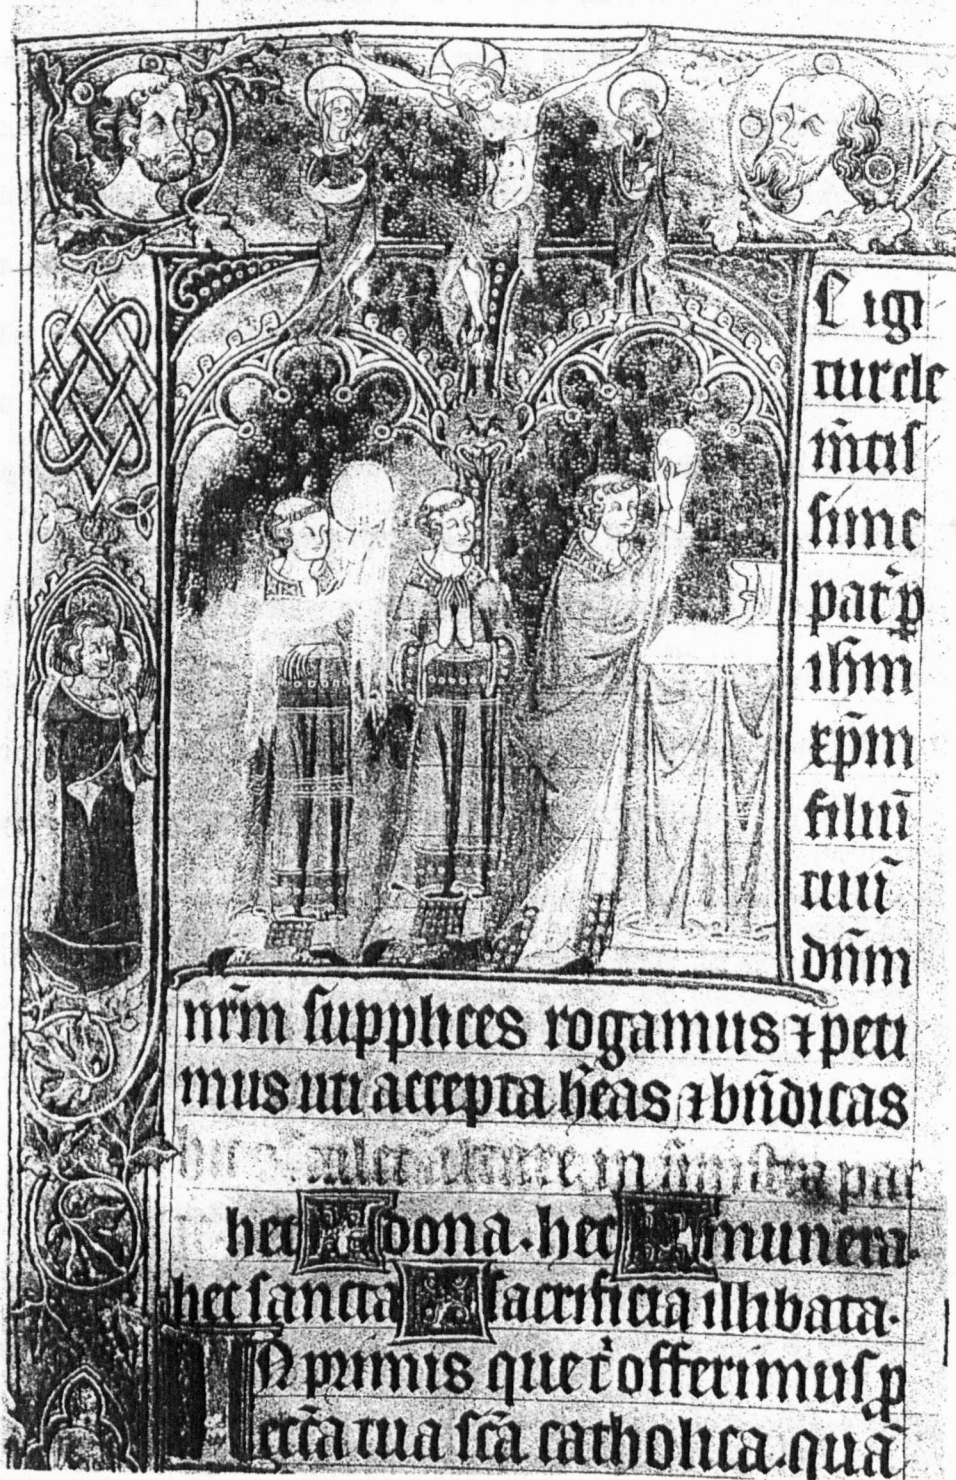 E igi
tur cle
m̄tis
sime
pat̾ ꝑ
ihm
xp̄m
filiū
tuū
dn̄m
nr̄m supplices rogamus ⁊ peti
mus uti accepta h̄eas ⁊ bn̄dicas
hec dona. hec munera.
hec sancta sacrificia illibata.
In primis que t̾ offerimus ꝓ
eccl̄a tua sc̄a catholica. quā